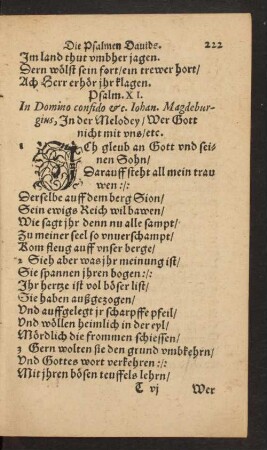 Die Psalmen Dauids. 222
Im land thut vmbher jagen.
Dern wölst sein fort/ein trewer hort/
Ach Herr erhör jhr klagen.
Psalm. XI.
In Domino confido &c. Iohan. Magdebur-
gius, In der Melodey/Wer Gott
nicht mit vns/etc.
1 ICh gleub an Gott vnd sei-
nen Sohn/
Darauff steht all mein trau
wen :/:
Derselbe auff dem berg Sion/
Sein ewigs Reich wil bawen/
Wie sagt jhr denn nu alle sampt/
Zu meiner seel so vnuerschampt/
Kom fleug auff vnser berge/
2 Sieh aber was jhr meinung ist/
Sie spannen jhren bogen :/:
Ihr hertze ist vol böser list/
Sie haben außgezogen/
Vnd auffgelegt jr scharpffe pfeil/
Vnd wöllen heimlich in der eyl/
Mördlich die frommen schiessen/
3 Gern wolten sie den grund vmbkehrn/
Vnd Gottes wort verkehren :/:
Mit jhren bösen teuffels lehrn/
C vj Wer